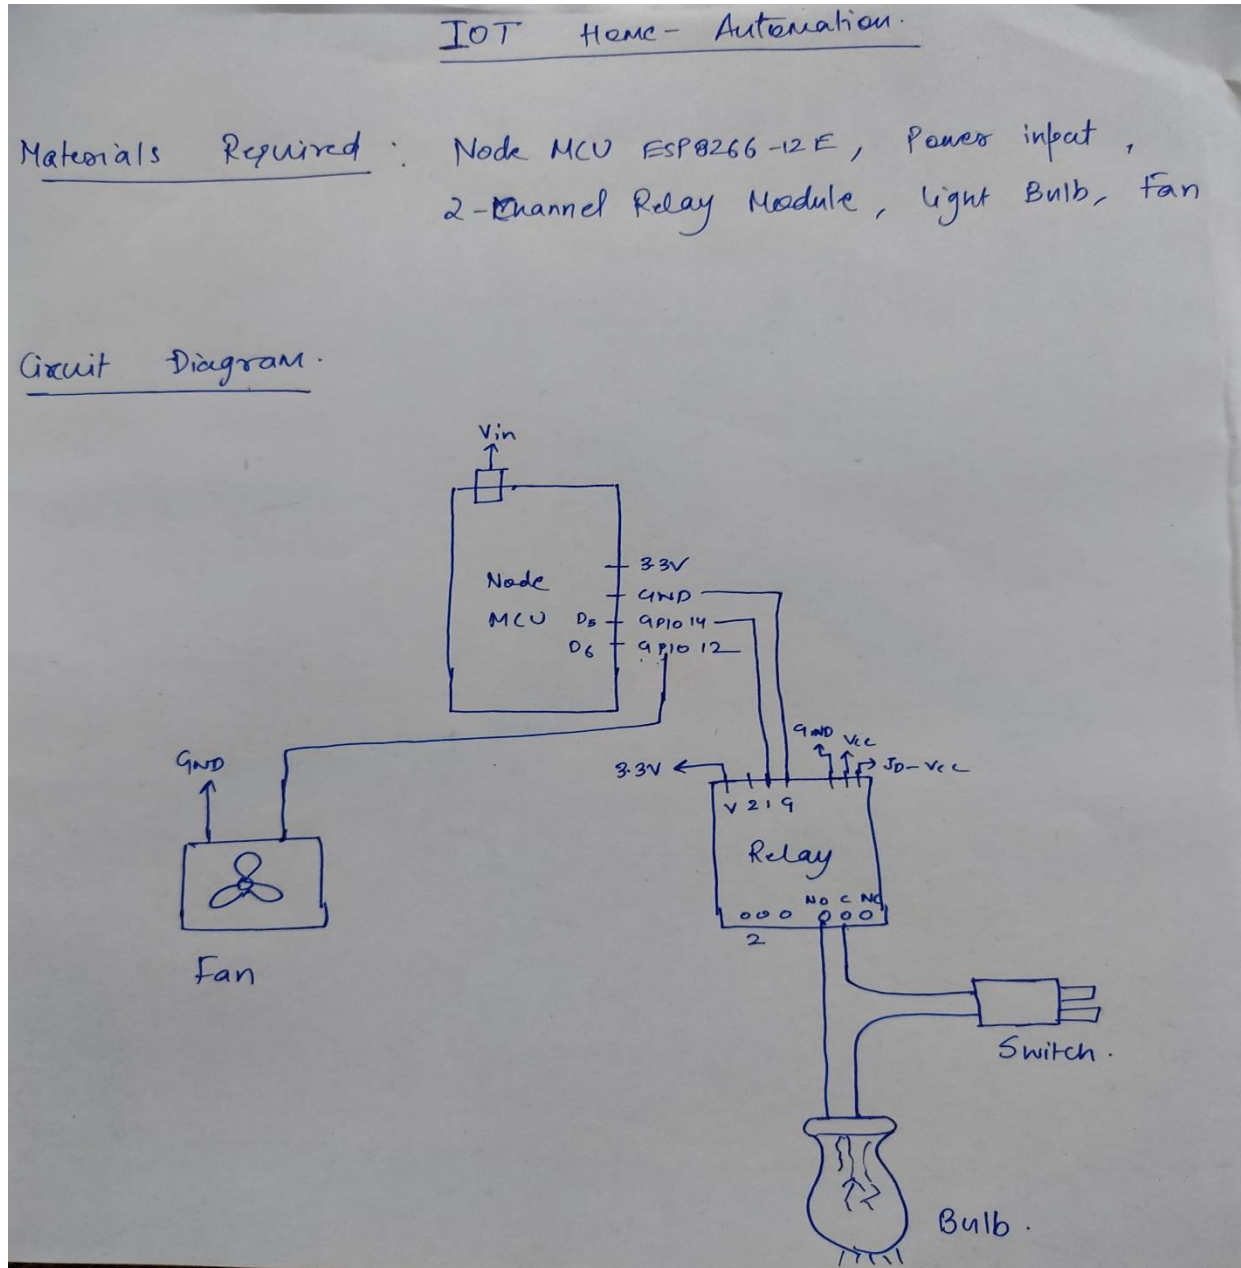 IOT Home- Automation.
Materials Required : Node MCU ESP8266-12E, Power input,
2-Channel Relay Module, light Bulb, Fan
Circuit Diagram.
Vin
3.3V
Node
GND
MCU D5 GPIO 14
D6 GPIO 12
GND
GND Vcc
3.3V JD-Vcc
V 2 1 G
Relay
NO C NC
2
Fan
Switch.
Bulb.